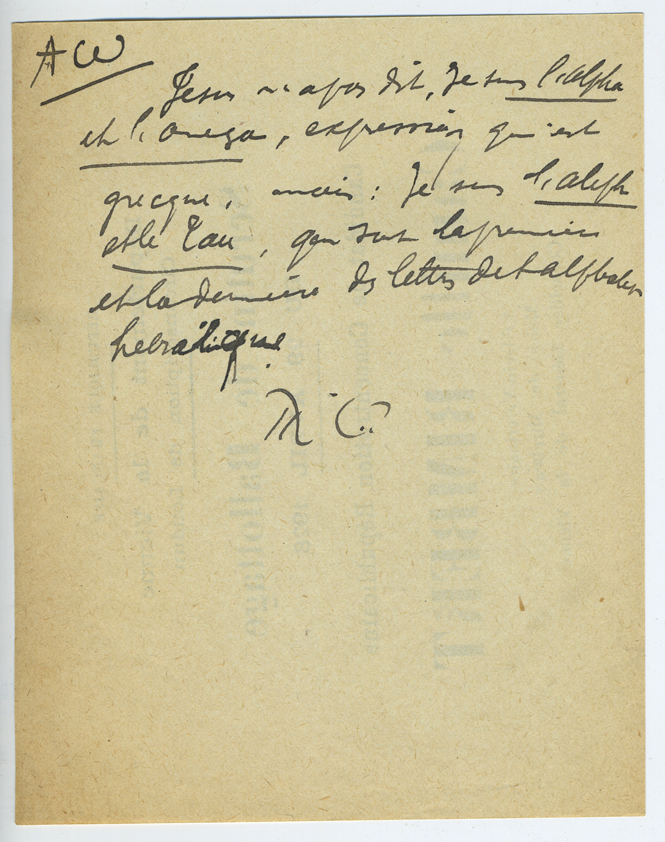 A ω
Jesus n'a pas dit, Je suis l'alpha
et l'omega, expression qui est
grecque, mais : Je suis l'aleph
et le Tau, qui sont la première
et la dernière des lettres de l'alphabet
hebraïque